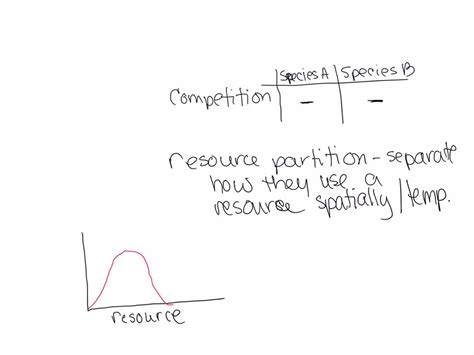 Species A Species B
Competition — —
resource partition - separate
how they use a
resource spatially/temp.
resource